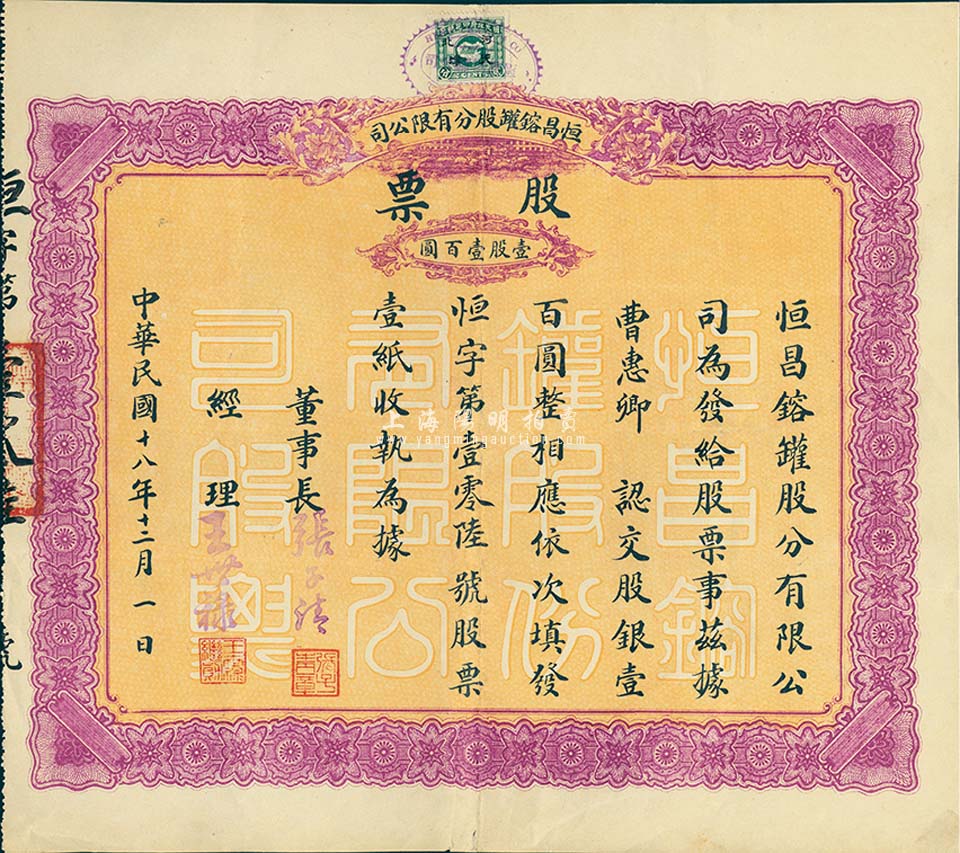 恒昌鎔罐股分有限公司
股票
壹股壹百圓
恒昌鎔罐股分有限公
司為發給股票事茲據
曹惠卿 認交股銀壹
百圓整相應依次填發
恒字第壹零陸號股票
壹紙收執為據
董事長 張子清
經理 王世祿
中華民國十八年十二月一日
上海陽明拍賣
www.yangmingauction.com
恒字第
號
CENTS